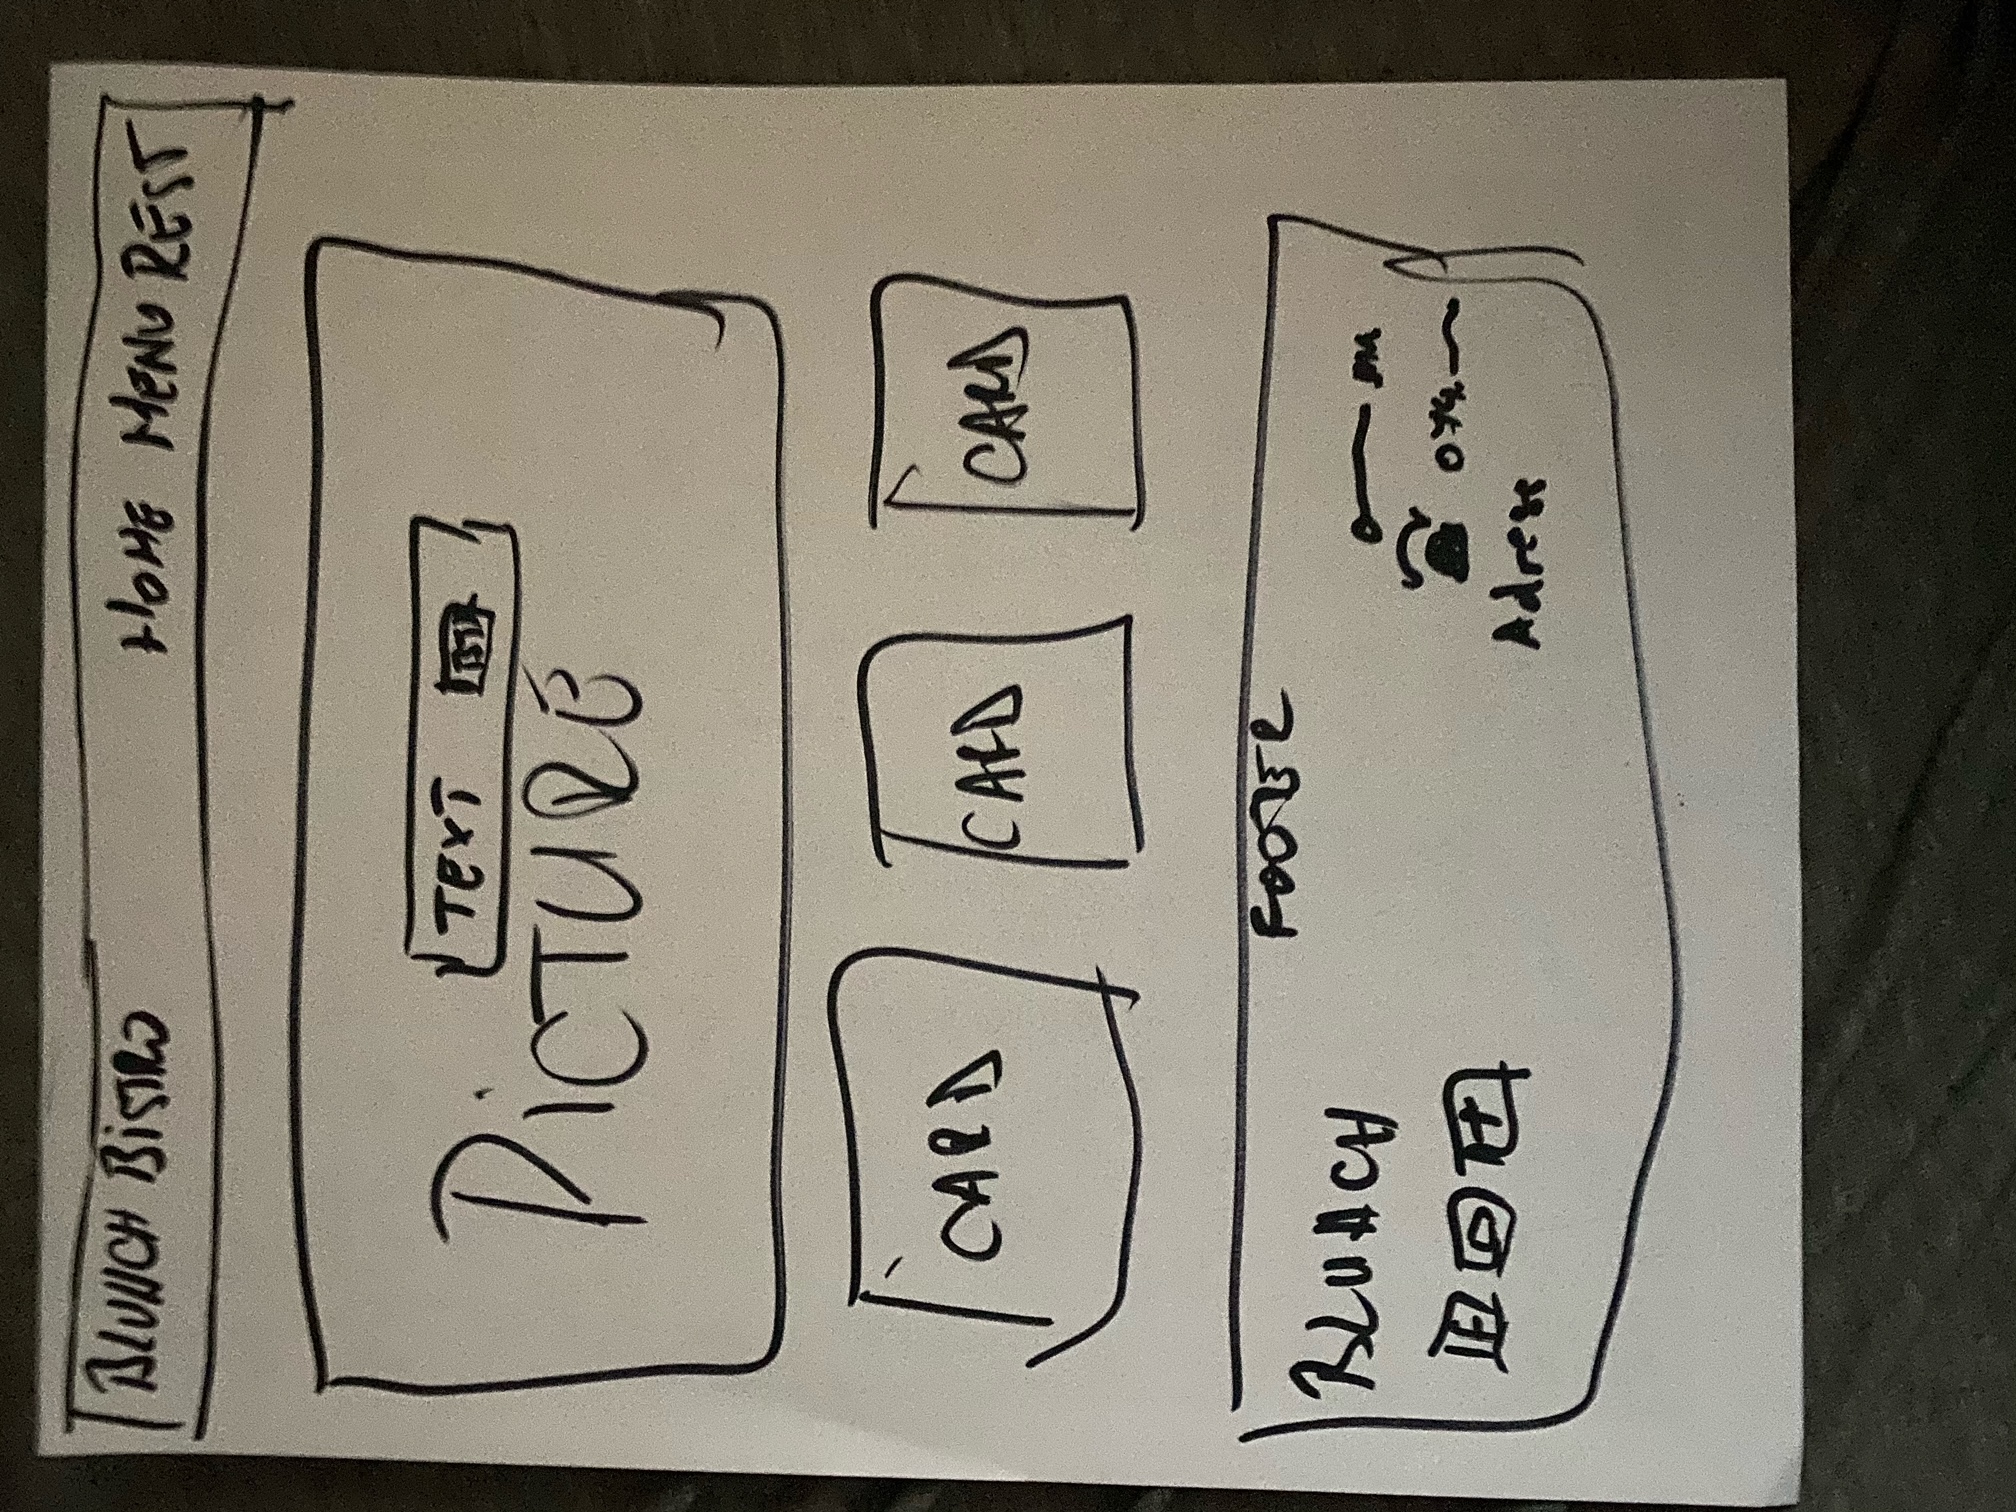 BLUNCH BISTRO HOME MENU REST
TEXT BTN
PICTURE
CARD CARD CARD
FOOTER
BLUNCH
074
Adress